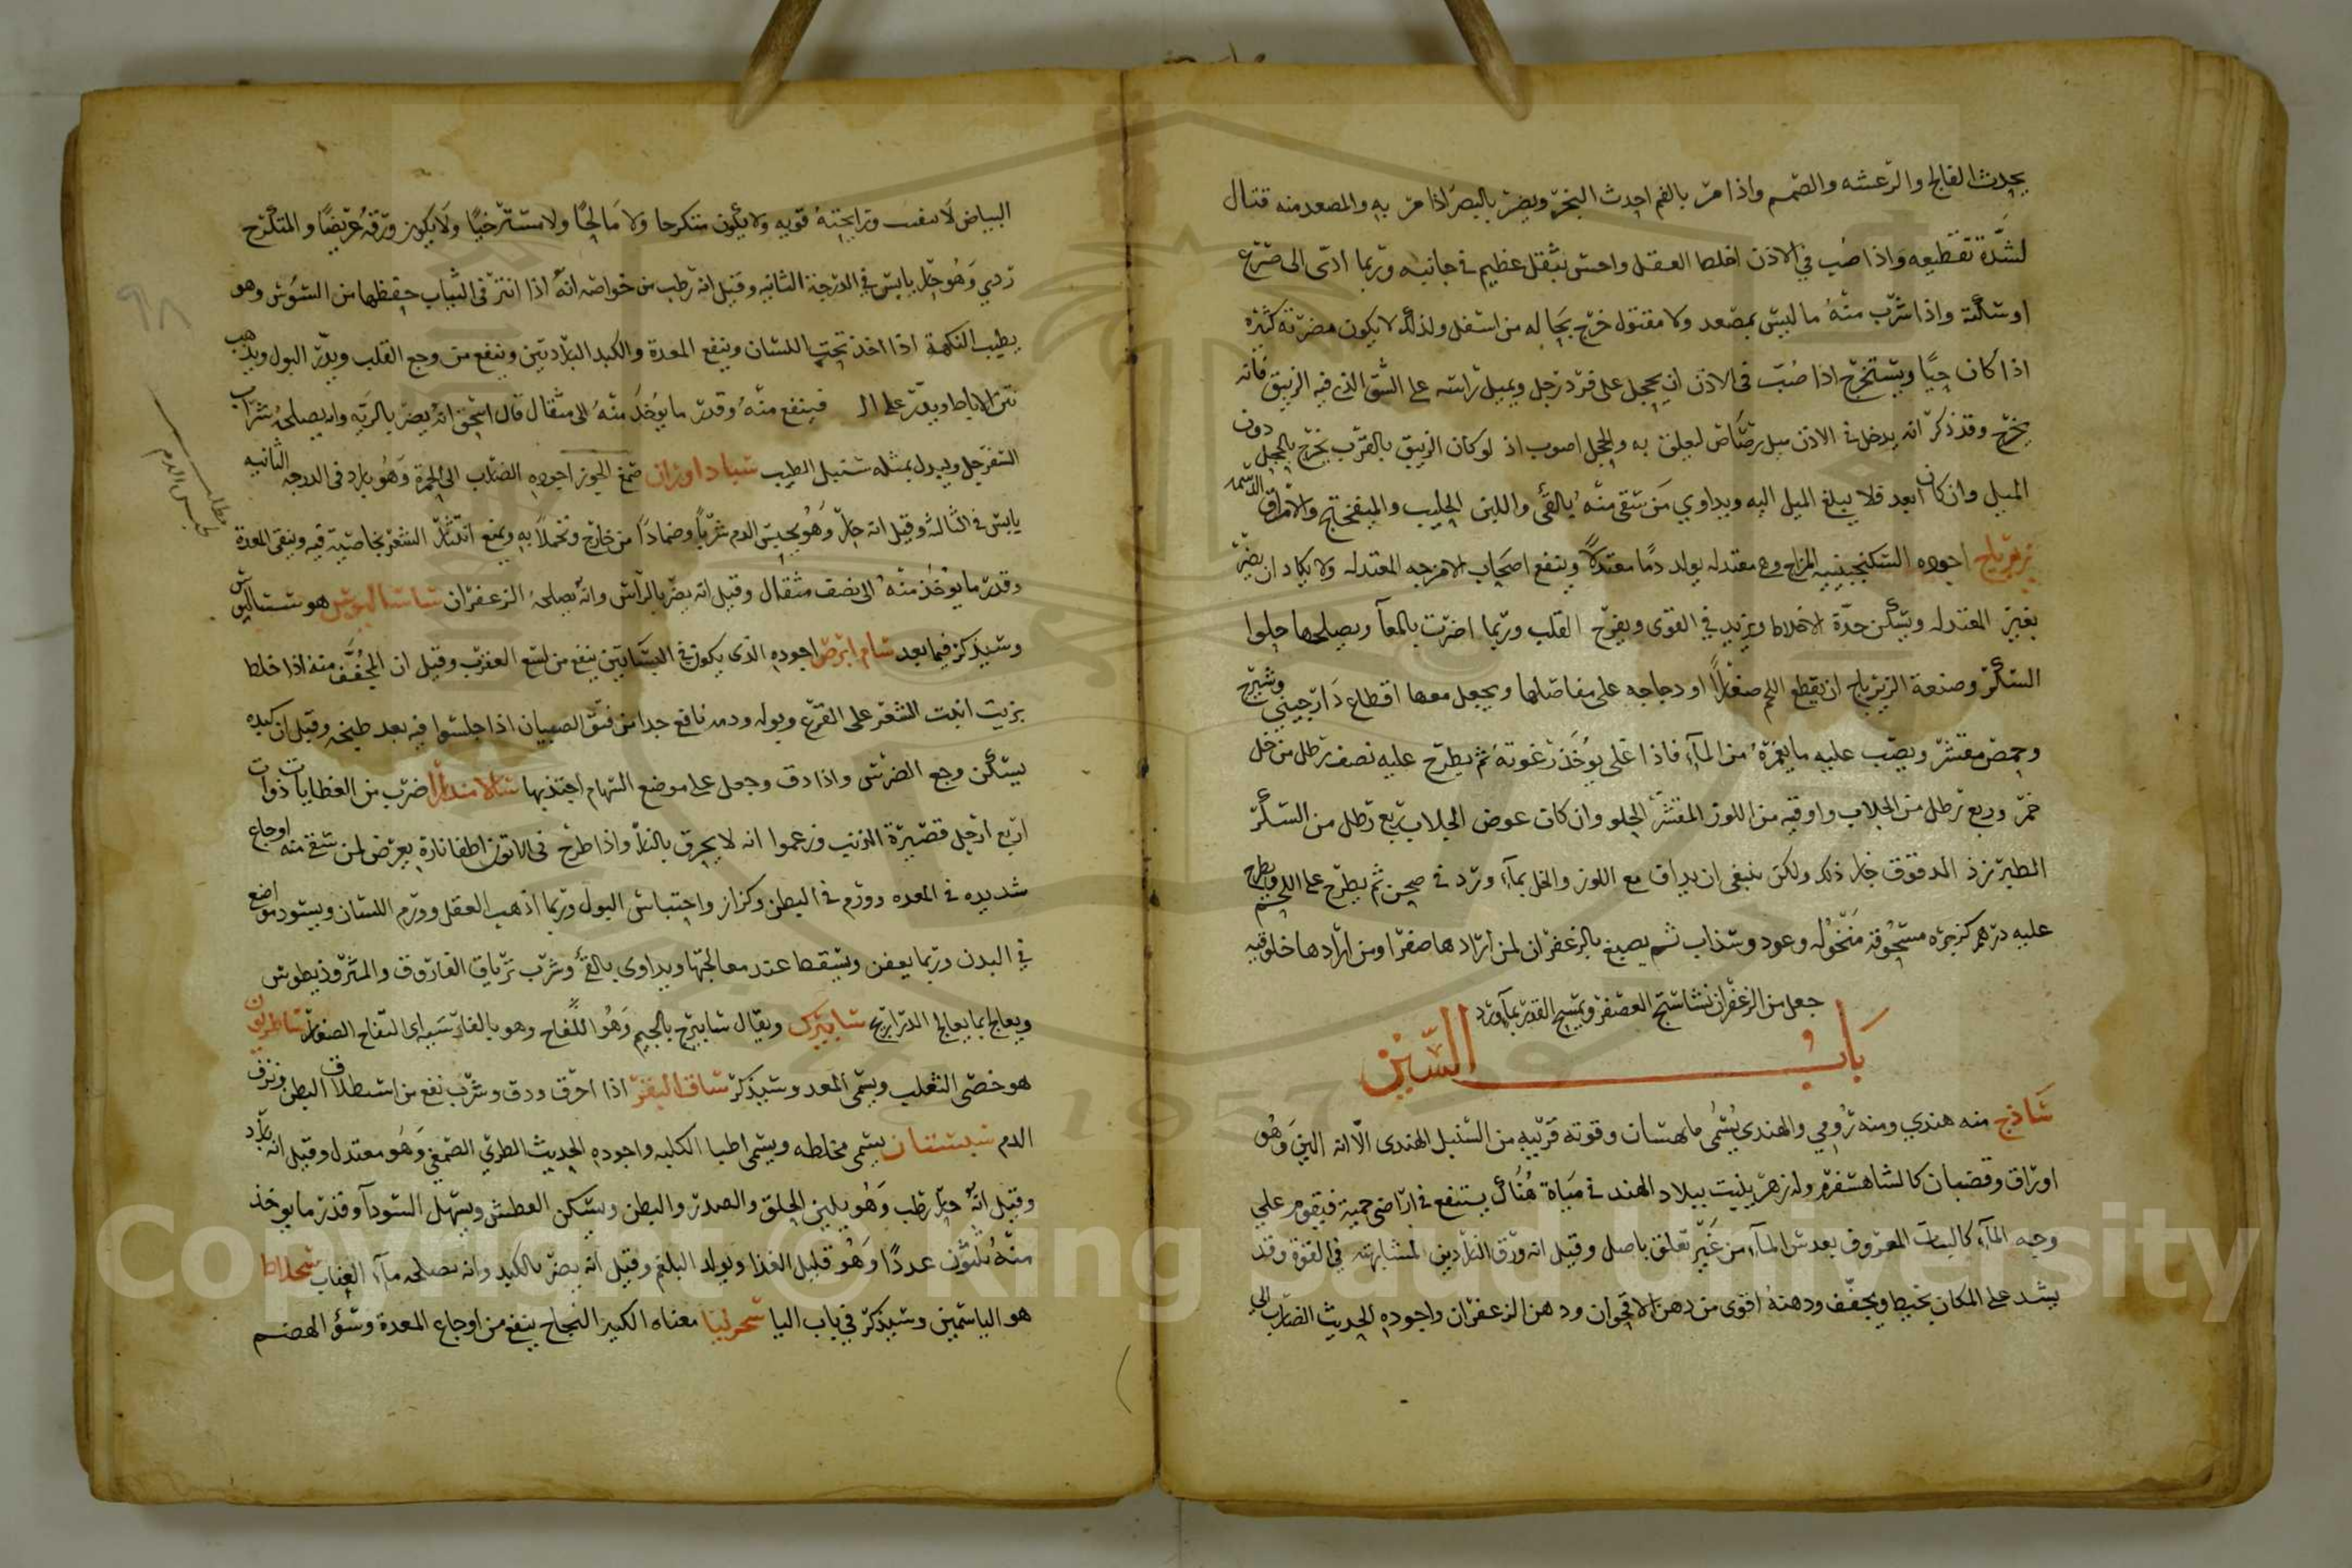 يحدث الفالج والرعشه والصمم واذا مر بالفم احدث البخر ويضر بالبصر اذا مر به والمصعد منه قتال
لشدة تقطيعه واذا صب في الاذن اخلط العقل واحس بثقل عظيم في جانبه وربما ادى الى صرع
او سكتة واذا شرب منه ما ليس بمصعد ولا مقتول خرج بحاله من اسفل ولذلك لا يكون مضرته كثيره
اذا كان حيا ويستخرج اذا صب في الاذن ان يحجل على فرد رجل ويميل راسه على الشق الذي فيه الزيبق فانه
يخرج وقد ذكر انه يدخل في الاذن ميل رصاص ليعلق به والحجل اصوب اذ لو كان الزيبق بالقرب يخرج بالحجل دون
الميل وان كان ابعد فلا يبلغ الميل اليه ويداوي من سقي منه بالقئ واللبن الحليب والميفختج والامراق الدسمه
زيرباج اجوده السكنجبينيه المزاج وهي معتدله يولد دما معتدلا وينفع اصحاب الامزجه المعتدله ولا يكاد ان يضر
بغير المعتدله ويسكن حدة الاخلاط ويزيد في القوى ويفرح القلب وربما اضرت بالمعآ ويصلحها حلوا
السكر وصنعة الزيرباج ان يقطع اللحم صغارا او دجاجه على مفاصلها ويجعل معها اقطاع دارجيني وشيرج
وحمص مقشر ويصب عليه ما يغمره من المآء فاذا غلى يوخذ رغوته ثم يطرح عليه نصف رطل من خل
خمر وربع رطل من الجلاب واوقيه من اللوز المقشر الحلو وان كان عوض الجلاب ربع رطل من السكر
الطبرزذ المدقوق جاز ذلك ولكن ينبغي ان يداف مع اللوز والخل بمآء ورد في صحن ثم يطرح على اللحم ويطرح
عليه درهم كزبره مسحوقه منخوله وعود وسذاب ثم يصبغ بالزعفران لمن ارادها صفرا ومن ارادها خلوقيه
جعل من الزعفران نشاستج العصفر ويمسح القدر بمآورد
باب السين
ساذج منه هندي ومنه رومي والهندي يسمى ماهستان وقوته قريبه من السنبل الهندي الا انه الين وهو
اوراق وقضبان كالشاهسفرم وله زهر ينبت ببلاد الهند في مياة هناك يستنفع في اراضي حمية فيقوم على
وجه المآء كالنبات المعروف بعدس المآء من غير تعلق باصل وقيل انه ورق الناردين لمشابهته في القوة وقد
يشد على المكان بخيط ويجفف ودهنه اقوى من دهن الاقحوان ودهن الزعفران واجوده الحديث الضارب الى
البياض لا ينفت ورايحته قويه ولا يكون متكرجا ولا مالحا ولا مسترخيا ولا يكون ورقه عريضا والمتكرج
ردي وهو حار يابس في الدرجة الثانيه وقيل انه رطب من خواصه انه اذا انثر في الثياب حفظها من السوس وهو
يطيب النكهة اذا اخذ تحت اللسان وينفع المعدة والكبد الباردتين وينفع من وجع القلب ويدر البول ويذهب
نتن الاباط ويدر على الـ فينفع منه وقدر ما يوخذ منه الى مثقال قال اسحق انه يضر بالريه وانه يصلحه شراب
السفرجل ويبدل بمثله سنبل الطيب سياد اوران صمغ الجوز اجوده الضارب الى الحمرة وهو بارد في الدرجه الثانيه
يابس في الثالثه وقيل انه حار وهو يحبس الدم شربا وضمادا من خارج وتحملا به ويمنع انتثار الشعر بخاصية فيه وينقي المعدة
وقدر ما يوخذ منه الى نصف مثقال وقيل انه يضر بالراس وانه يصلحه الزعفران ساساليوس هو سساليوس
وسيذكر فيما بعد سام ابرص اجوده الذي يكون في البساتين ينفع من لسع العقرب وقيل ان المجفف منه اذا خلط
بزيت انبت الشعر على القرع وبوله ودمه نافع جدا من فتق الصبيان اذا جلسوا فيه بعد طبخه وقيل ان كبده
يسكن وجع الضرس واذا دق وجعل على موضع السهام اجتذبها سالامندرا ضرب من العظايات ذوات
اربع ارجل قصيرة الذنب وزعموا انه لا يحرق بالنار واذا طرح في الاتون اطفا ناره يعرض لمن سقي منه اوجاع
شديده في المعده وورم في البطن وكزاز واحتباس البول وربما اذهب العقل وورم اللسان ويسود مواضع
في البدن وربما يعفن ويسقط عند معالجتها ويداوى بالقئ وشرب ترياق الفاروق والمثروذيطوس
ويعالج بما يعالج الذراريح سابيزك ويقال سابيزج بالجيم وهو اللفاح وهو بالفارسيه اي التفاح الصغار ساطريون
هو خصي الثعلب ويسمى المعد وسيذكر ساق البقر اذا احرق ودق وشرب نفع من استطلاق البطن ونزف
الدم سبستان يسمى مخاطه ويسمى اطبا الكلبه واجوده الحديث الطري الصمغي وهو معتدل وقيل انه بارد
وقيل انه حار رطب وهو يلين الحلق والصدر والبطن ويسكن العطش ويسهل السودآ وقدر ما يوخذ
منه ثلثون عددا وهو قليل الغذا ويولد البلغم وقيل انه يضر بالكبد وانه يصلحه مآء العناب سجلاط
هو الياسمين وسيذكر في باب اليا سحرلينا معناه الكبير النجاح ينفع من اوجاع المعدة وسؤ الهضم
مطلب
يحبس الدم
٩٨
Copyright © King Saud University
1957